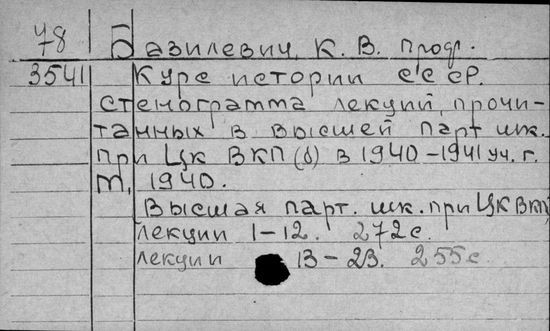 78 Базилевич, К. В. проф.
3541 Курс истории СССР.
Стенограмма лекций, прочи-
танных в высшей парт. шк.
при ЦК ВКП(б) в 1940-1941 уч. г.
М., 1940.
Высшая парт. шк. при ЦК ВКП
лекции 1-12. 272 с.
лекции 13-23. 255 с